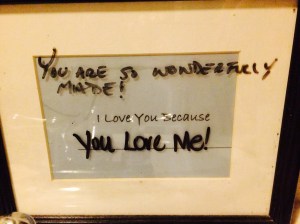 YOU ARE SO WONDERFULLY
MADE!
I Love You Because
You Love Me!